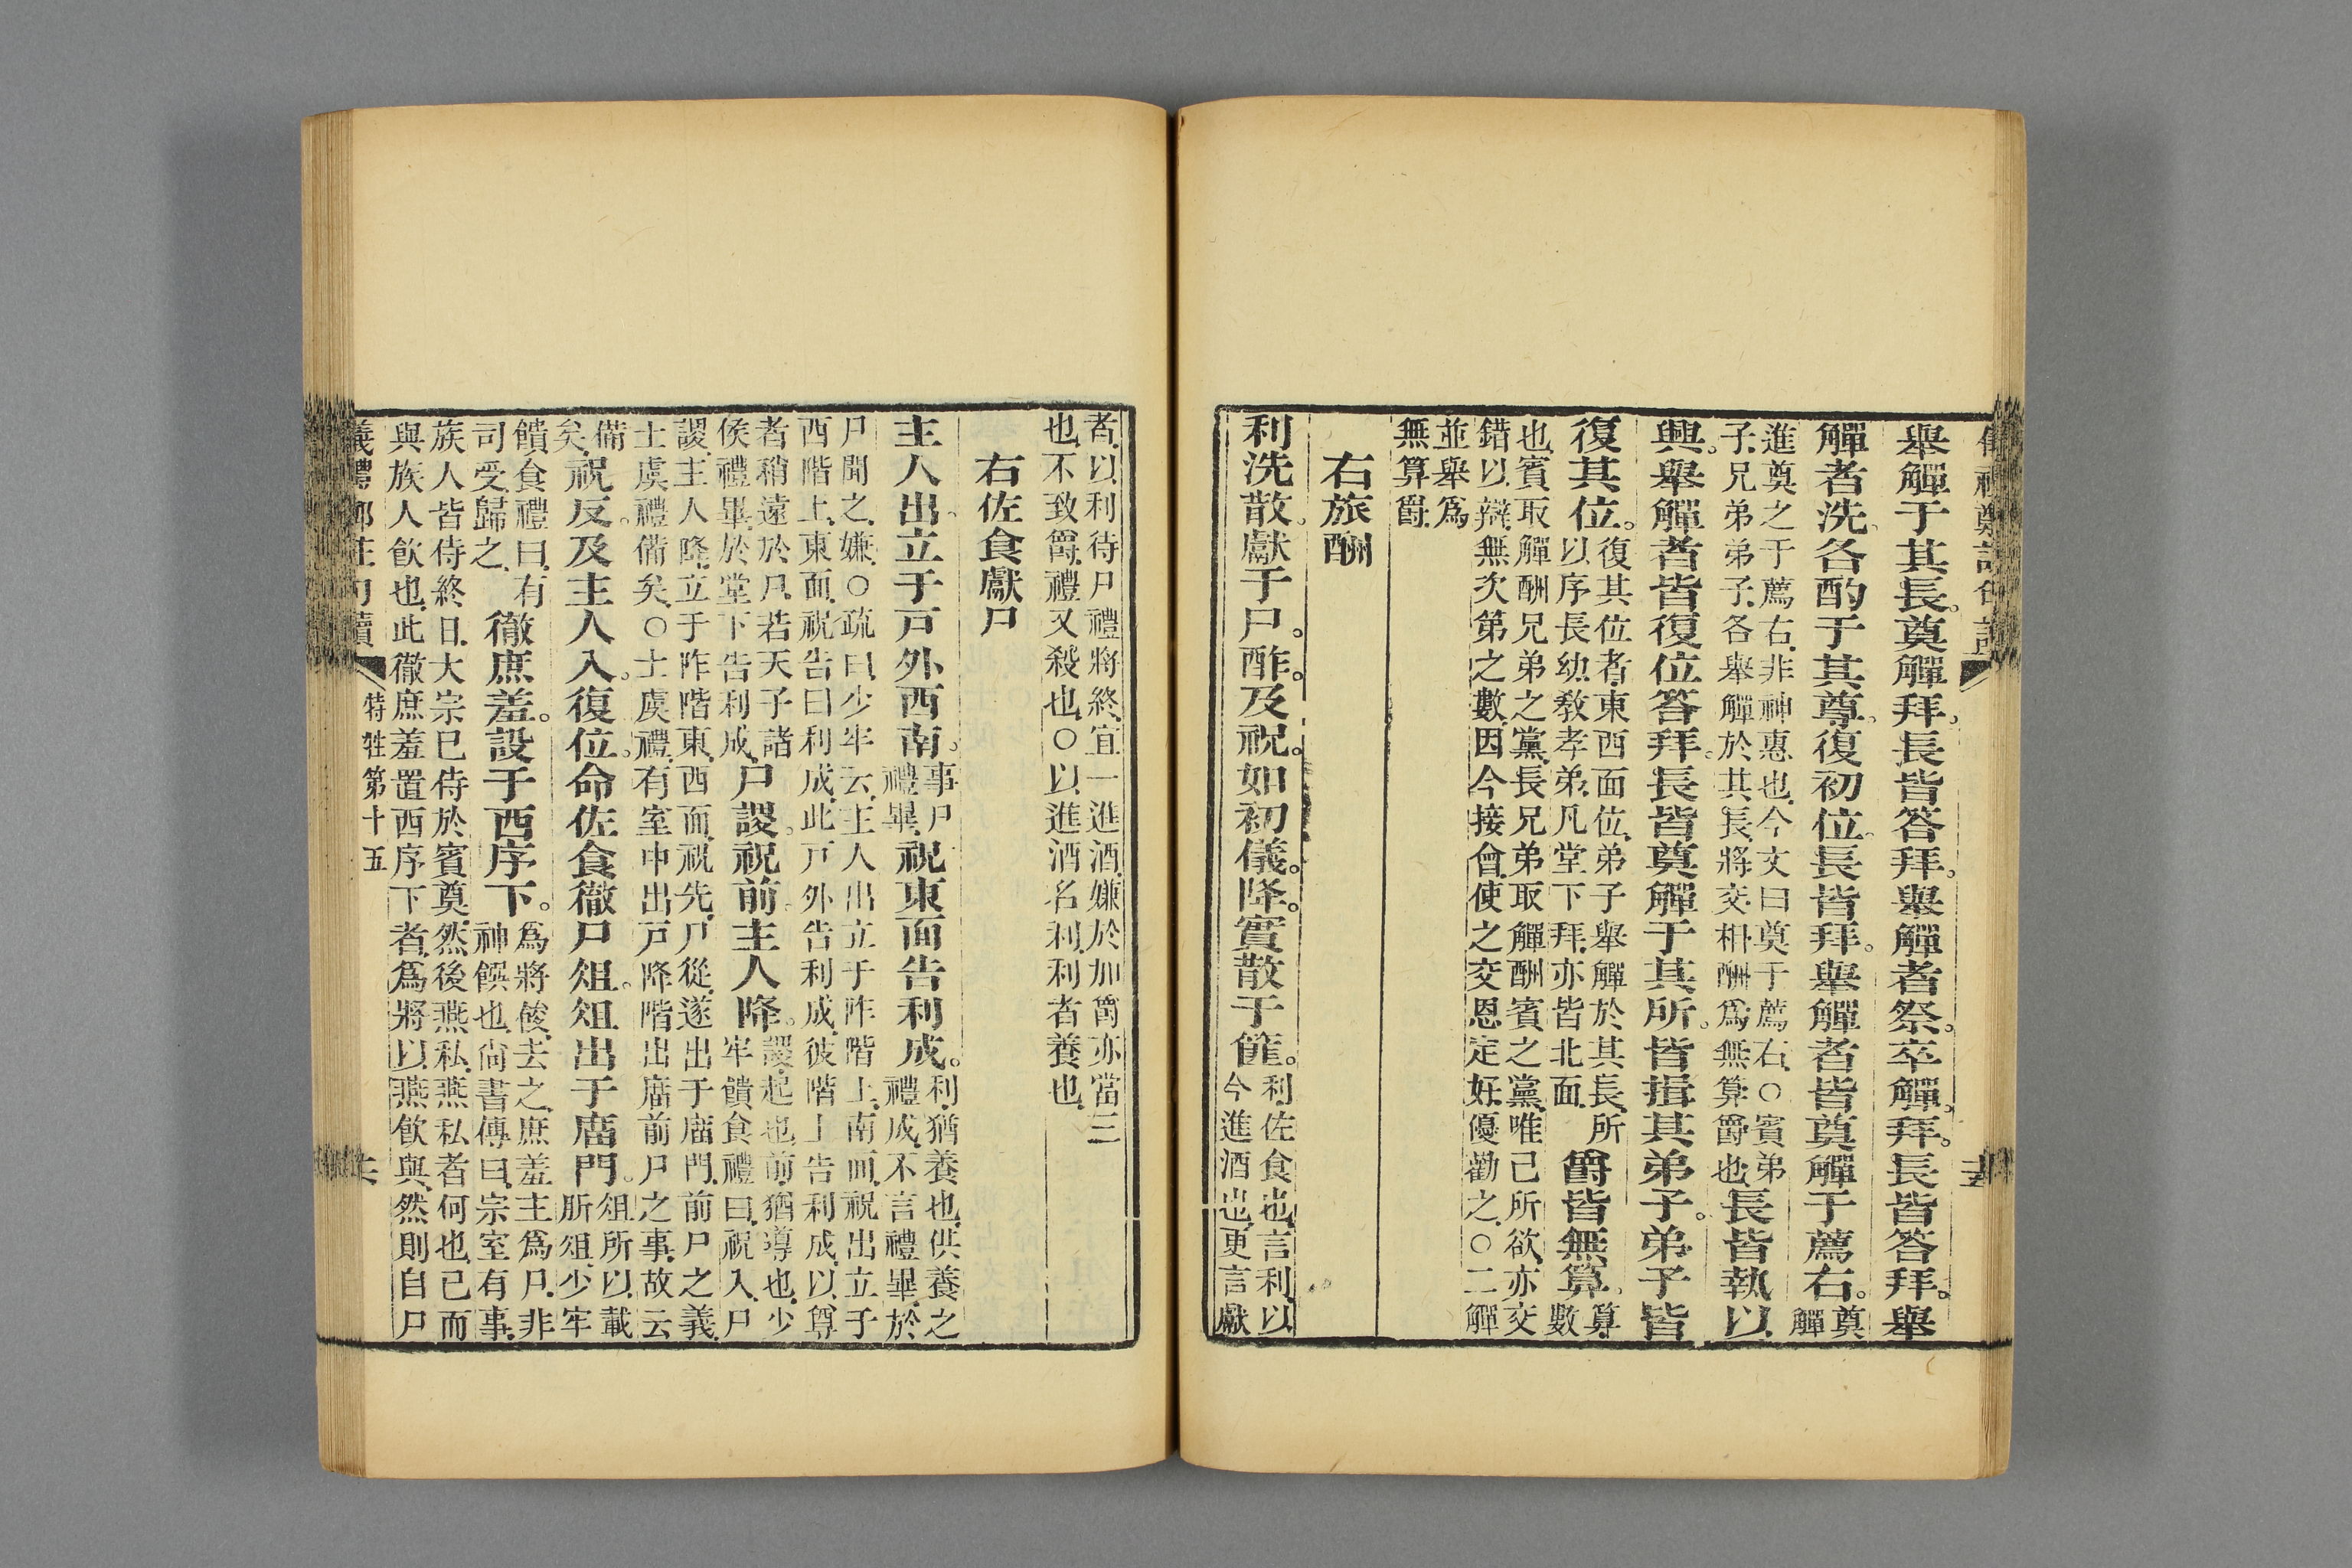 儀禮鄭註句讀
舉觶于其長。奠觶拜。長皆答拜。舉觶者祭。卒觶。拜。長皆答拜。舉
觶者洗。各酌于其尊。復初位。長皆拜。舉觶者皆奠觶于薦右。奠
觶
進奠之于薦右.非神惠也.今文曰奠于薦右.○賓弟
子.兄弟弟子.各舉觶於其長.將交相酬爲無算爵也.長皆執以
興。舉觶者皆復位答拜。長皆奠觶于其所。皆揖其弟子。弟子皆
復其位。復其位者.東西面位.弟子舉觶於其長.所
以序長幼.教孝弟.凡堂下拜.亦皆北面.爵皆無算。算.
數
也.賓取觶酬兄弟之黨.長兄弟取觶酬賓之黨.唯己所欲.亦交
錯以辯.無次第之數.因今接會.使之交恩定好.優勸之.○二觶
並舉爲
無算爵.
右旅酬
利洗散。獻于尸。酢。及祝。如初儀。降。實散于篚。利佐食也.言利以
今進酒也.更言獻
者.以利待尸禮將終.宜一進酒.嫌於加爵亦當三
也.不致爵.禮又殺也.○以進酒名利.利者養也.
右佐食獻尸
主人出。立于戶外西南。事尸
禮畢.祝東面告利成。利.猶養也.供養之
禮成.不言禮畢.於
尸聞之嫌.○疏曰.少牢云.主人出立于阼階上.南面.祝出立于
西階上.東面.祝告曰利成.此戶外告利成.彼階上告利成.以尊
者稍遠於尸.若天子諸
侯禮畢.於堂下告利成.尸謖。祝前。主人降。謖.起也.前.猶導也.少
牢饋食禮曰.祝入.尸
謖.主人降.立于阼階東.西面.祝先.尸從.遂出于廟門.前尸之義.
士虞禮備矣.○士虞禮.有室中出戶降階出廟前尸之事.故云
備
矣.祝反。及主人入。復位。命佐食徹尸俎。俎出于廟門。俎所以載
肵俎.少牢
饋食禮曰.有
司受歸之.徹庶羞。設于西序下。爲將餕.去之.庶羞主爲尸.非
神饌也.尙書傳曰.宗室有事.
族人皆侍終日.大宗已侍於賓奠.然後燕私.燕私者何也.已而
與族人飮也.此徹庶羞置西序下者.爲將以燕飮與.然則自尸
儀禮鄭註句讀 特牲第十五